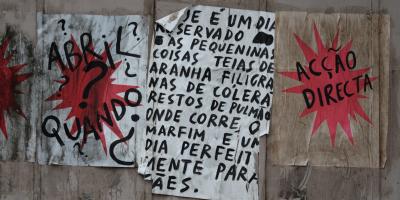 ABRIL
?
QUANDO
?
SE É UM DIA
RESERVADO
ÀS PEQUENINAS
COISAS TEIAS DE
ARANHA FILIGRA
NAS DE COLERA
RESTOS DE PULMÃO
ONDE CORRE O
MARFIM E UM
DIA PERFEIT
MENTE PARA
CÃES.
ACÇÃO
DIRECTA